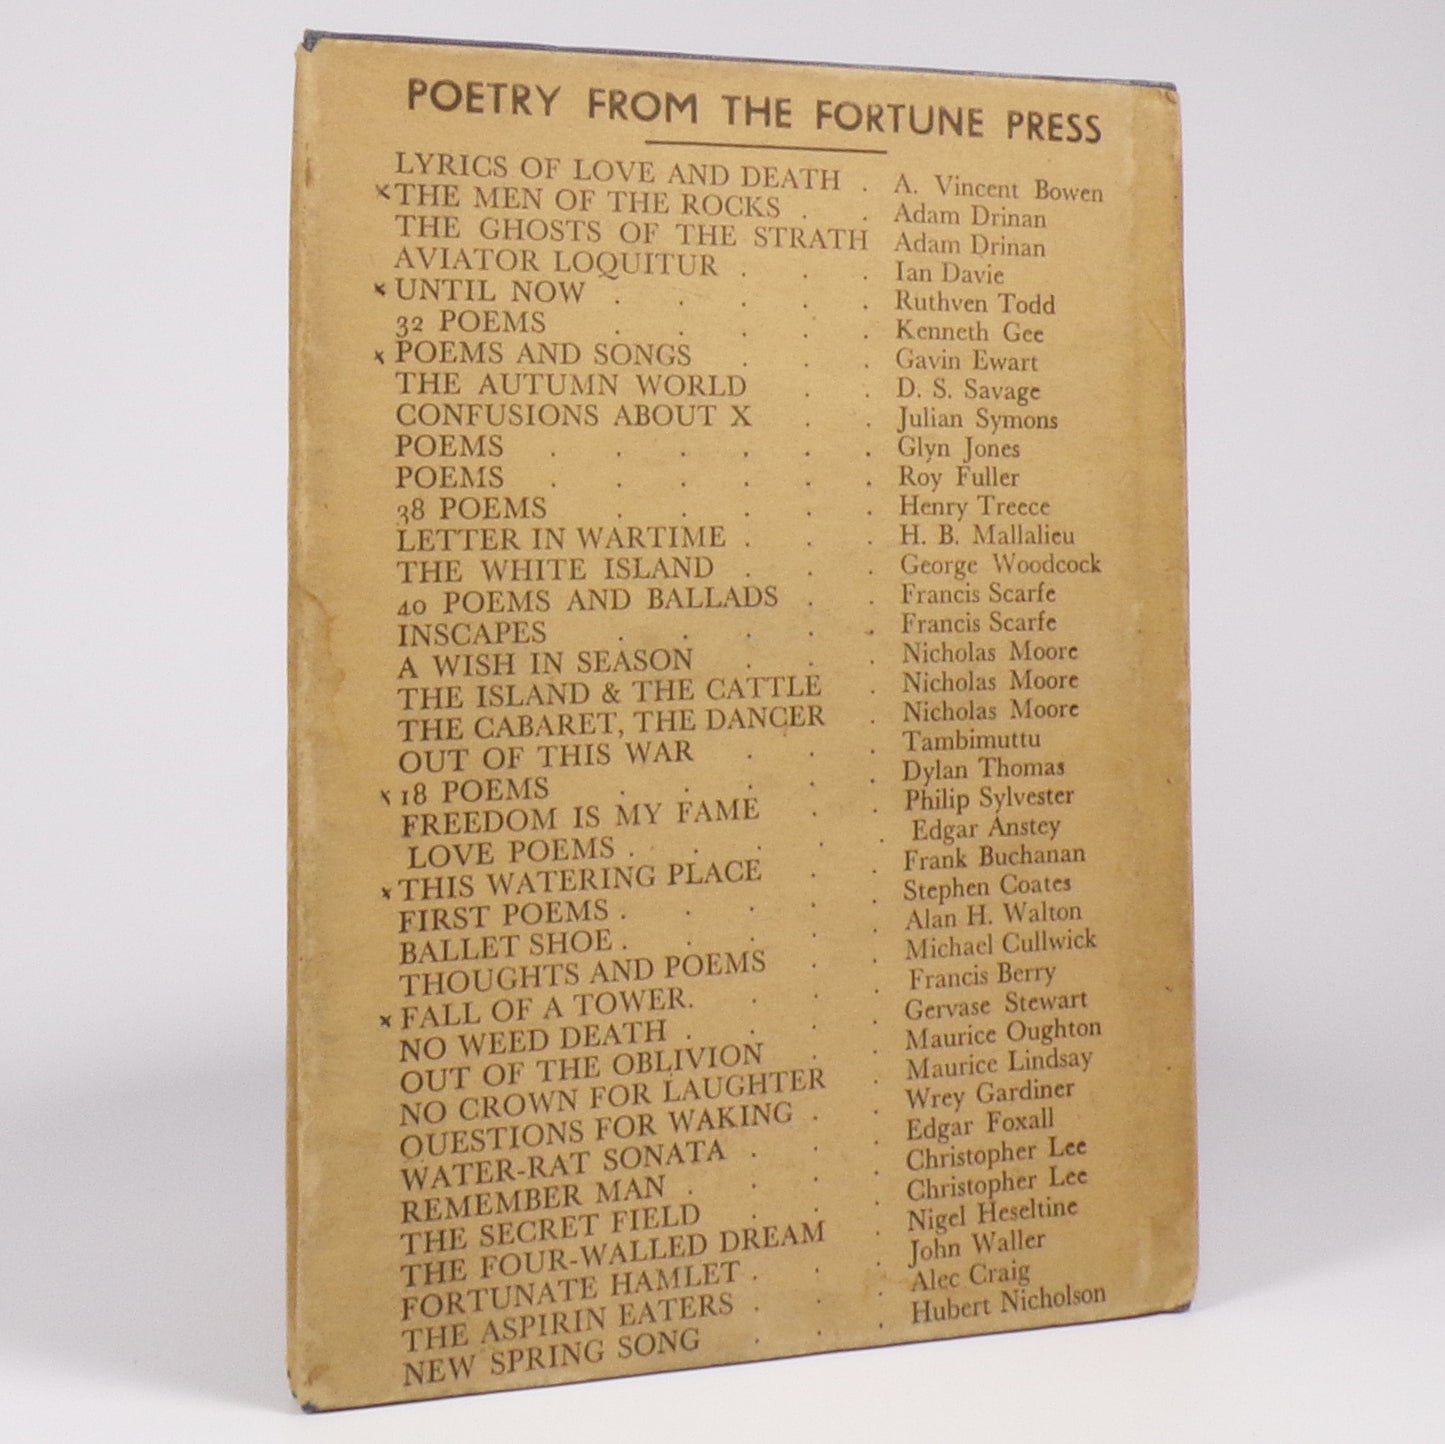 POETRY FROM THE FORTUNE PRESS
LYRICS OF LOVE AND DEATH . A. Vincent Bowen
x THE MEN OF THE ROCKS . . Adam Drinan
THE GHOSTS OF THE STRATH Adam Drinan
AVIATOR LOQUITUR . . . Ian Davie
x UNTIL NOW . . . . . Ruthven Todd
32 POEMS . . . . . Kenneth Gee
x POEMS AND SONGS . . . Gavin Ewart
THE AUTUMN WORLD . . D. S. Savage
CONFUSIONS ABOUT X . . Julian Symons
POEMS . . . . . . Glyn Jones
POEMS . . . . . . Roy Fuller
38 POEMS . . . . . Henry Treece
LETTER IN WARTIME . . . H. B. Mallalieu
THE WHITE ISLAND . . . George Woodcock
40 POEMS AND BALLADS . . Francis Scarfe
INSCAPES . . . . . Francis Scarfe
A WISH IN SEASON . . . Nicholas Moore
THE ISLAND & THE CATTLE . Nicholas Moore
THE CABARET, THE DANCER . Nicholas Moore
OUT OF THIS WAR . . . Tambimuttu
x 18 POEMS . . . . . Dylan Thomas
FREEDOM IS MY FAME . . Philip Sylvester
LOVE POEMS . . . . . Edgar Anstey
x THIS WATERING PLACE . . Frank Buchanan
FIRST POEMS . . . . . Stephen Coates
BALLET SHOE . . . . . Alan H. Walton
THOUGHTS AND POEMS . . Michael Cullwick
x FALL OF A TOWER. . . . Francis Berry
NO WEED DEATH . . . . Gervase Stewart
OUT OF THE OBLIVION . . Maurice Oughton
NO CROWN FOR LAUGHTER . Maurice Lindsay
QUESTIONS FOR WAKING . . Wrey Gardiner
WATER-RAT SONATA . . . Edgar Foxall
REMEMBER MAN . . . . Christopher Lee
THE SECRET FIELD . . . Christopher Lee
THE FOUR-WALLED DREAM . Nigel Heseltine
FORTUNATE HAMLET . . . John Waller
THE ASPIRIN EATERS . . . Alec Craig
NEW SPRING SONG . . . Hubert Nicholson